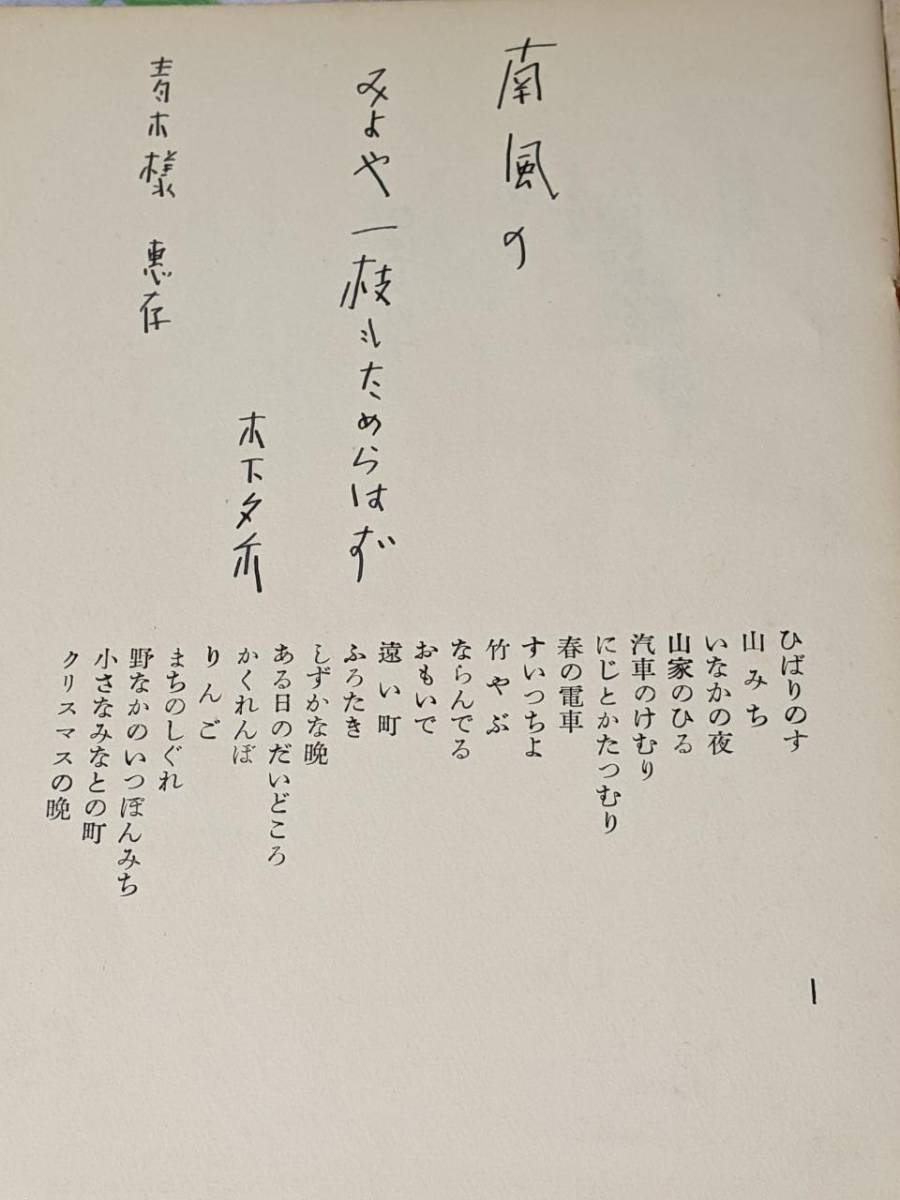 南風の
みよや一枝もためらはず
木下夕爾
青木様 恵存
ひばりのす
山みち
いなかの夜
山家のひる
汽車のけむり
にじとかたつむり
春の電車
すいつちよ
竹やぶ
ならんでる
おもいで
遠い町
ふろたき
しずかな晩
ある日のだいどころ
かくれんぼ
りんご
まちのしぐれ
野なかのいつぽんみち
小さなみなとの町
クリスマスの晩
1